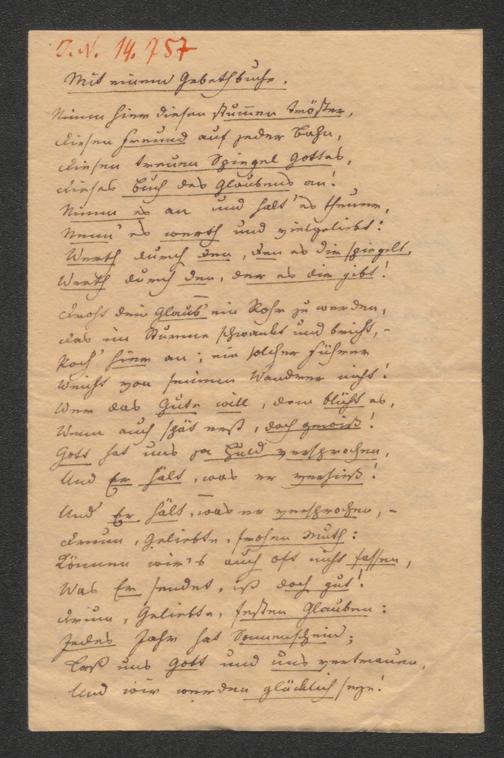 I.N. 14.757
Mit einem Gebethbuche.
Nimm hier diesen stummen Tröster,
Diesen Freund auf jeder Bahn,
Diesen treuen Spiegel Gottes,
Dieses Buch des Glaubens an!
Nimm es an und halt' es theuer,
Nenn' es werth und vielgeliebt:
Werth durch den, den es dir spiegelt,
Werth durch den, der es dir gibt!
Droht dein Glaub' ein Rohr zu werden,
Das im Sturme schwankt und bricht, –
Poch' hier an; ein solcher Führer
Weicht von seinem Wandrer nicht!
Wer das Gute will, dem blüht es,
Wenn auch spät erst, doch gewiß!
Gott hat uns ja Huld versprochen,
Und Er hält, was er verhieß!
Und Er hält, was er versprochen, –
Drum, Geliebte, frohen Muth:
Können wir's auch oft nicht fassen,
Was Er sendet, ist doch gut!
Drum, Geliebte, festen Glauben:
Jedes Jahr hat Sonnenschein;
Laß uns Gott und uns vertrauen,
Und wir werden glücklich seyn!